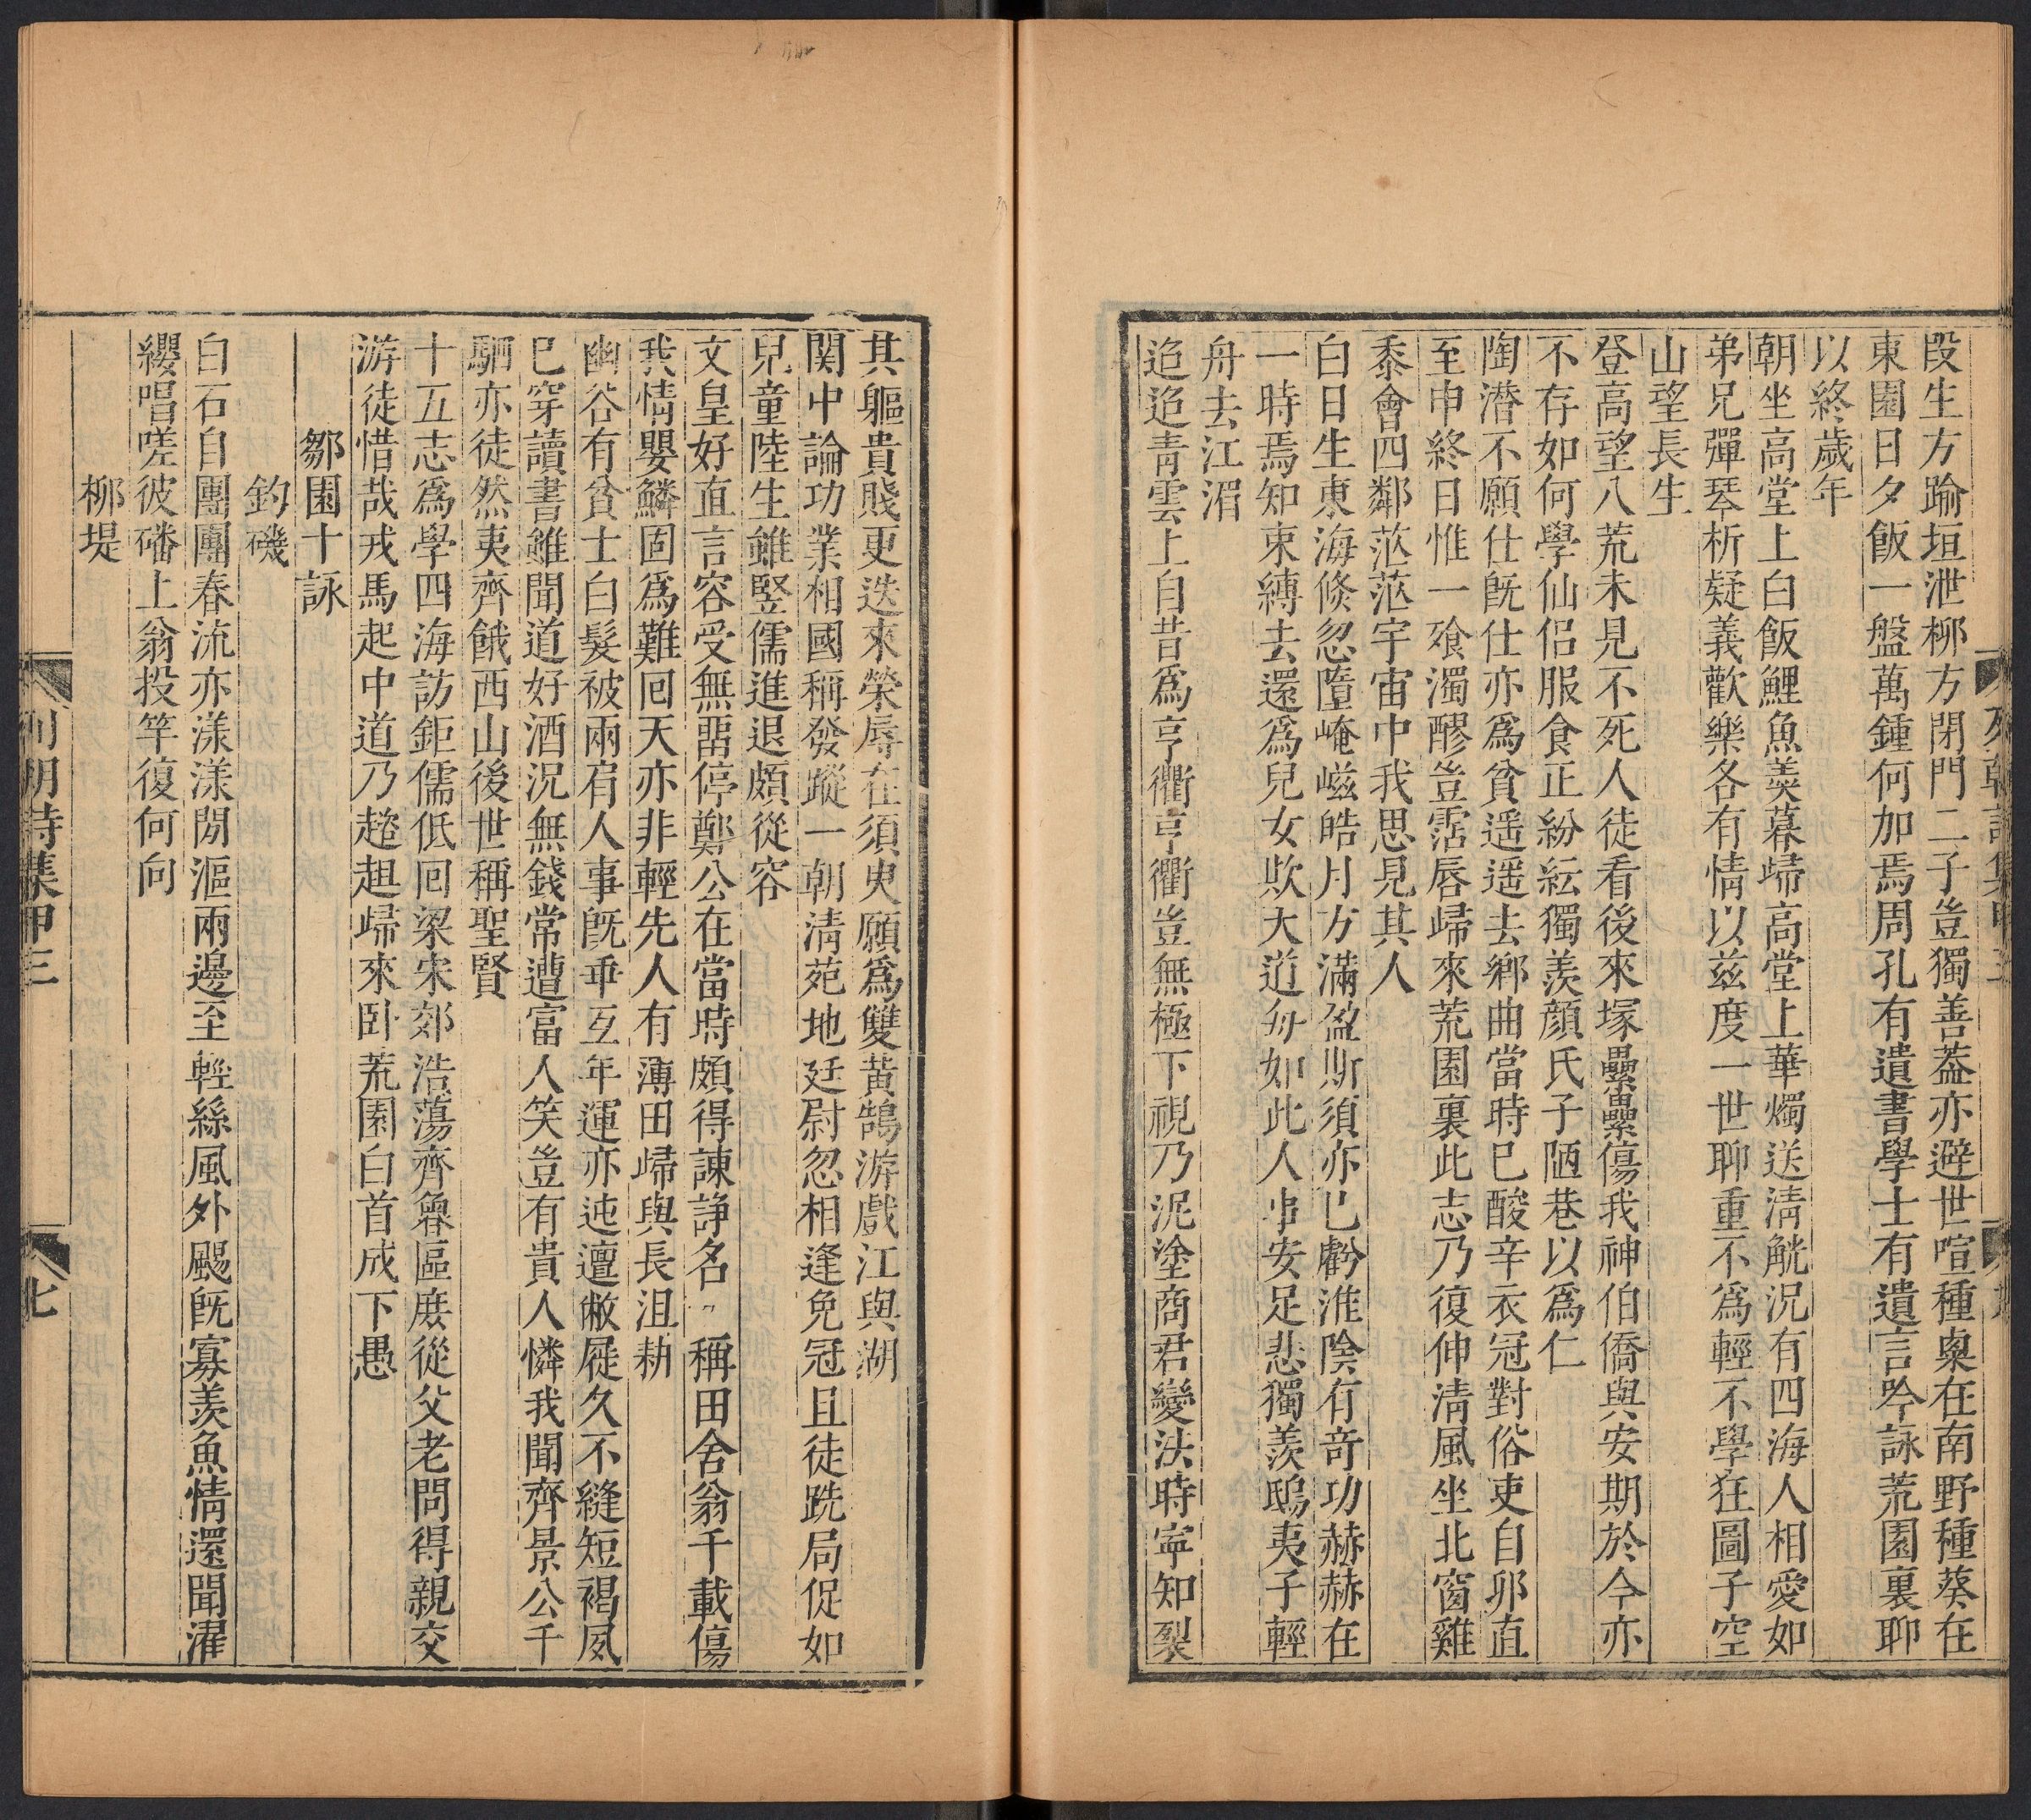 段生方踰垣泄柳方閉門二子豈獨善葢亦避世喧種奥在南野種葵在
東園日夕飯一盤萬鍾何加焉周孔有遺書學士有遺言吟詠荒園裏聊
以終歲年
朝坐高堂上白飯鯉魚羮暮歸高堂上華燭送清觥況有四海人相愛如
弟兄彈琴析疑義歡樂各有情以兹度一世聊重不爲輕不學狂圖子空
山望長生
登高望八荒未見不死人徒看後來塚纍纍傷我神伯僑與安期於今亦
不存如何學仙侶服食正紛紜獨羨顔氏子陋巷以爲仁
陶潛不願仕旣仕亦爲貧遥遥去鄉曲當時已酸辛衣冠對俗吏自卯直
至申終日惟一飱濁醪豈霑唇歸來荒園裏此志乃復伸清風坐北窗雞
黍會四鄰茫茫宇宙中我思見其人
白日生東海倐忽隱崦嵫皓月方滿盈斯須亦已虧淮陰有奇功赫赫在
一時焉知束縛去還爲兒女欺大道每如此人事安足悲獨羨鴟夷子輕
舟去江湄
迢迢靑雲上自昔爲亨衢亨衢豈無極下視乃泥塗商君變法時寧知裂
其軀貴賤更迭來榮辱在須臾願爲雙黃鵠游戲江與湖
関中論功業相國稱發蹤一朝淸苑地廷尉忽相逢免冠且徒跣局促如
兒童陸生雖豎儒進退頗從容
文皇好直言容受無嚚停鄭公在當時頗得諫諍名〃稱田舍翁千載傷
我情嬰鱗固爲難囘天亦非輕先人有薄田歸與長沮耕
幽谷有貧士白髮被兩肩人事旣乖互年運亦迍邅敝屣久不縫短褐夙
已穿讀書雖聞道好酒況無錢常遭富人笑豈有貴人憐我聞齊景公千
駟亦徒然夷齊餓西山後世稱聖賢
十五志爲學四海訪鉅儒低囘梁宋郊浩蕩齊魯區庻從父老問得親交
游徒惜哉戎馬起中道乃趑趄歸來卧荒園白首成下愚
鄒園十詠
釣磯
白石自團團春流亦漾漾閒漚兩邊至輕絲風外颺旣寡羨魚情還聞濯
纓唱嗟彼磻上翁投竿復何向
柳堤
列朝詩集甲三
七